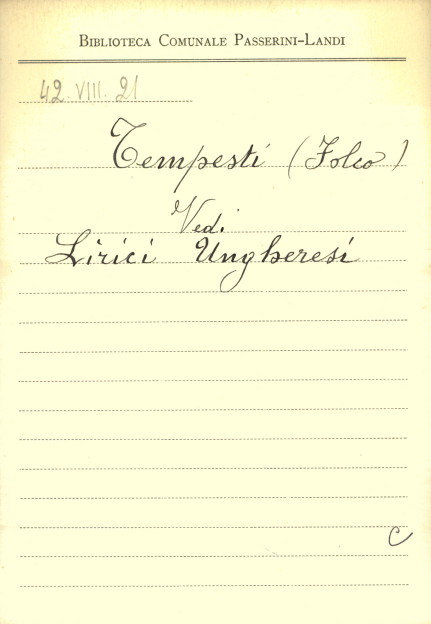 BIBLIOTECA COMUNALE PASSERINI-LANDI
42. VIII. 21
Tempesti (Folco)
Vedi
Lirici Ungheresi
C